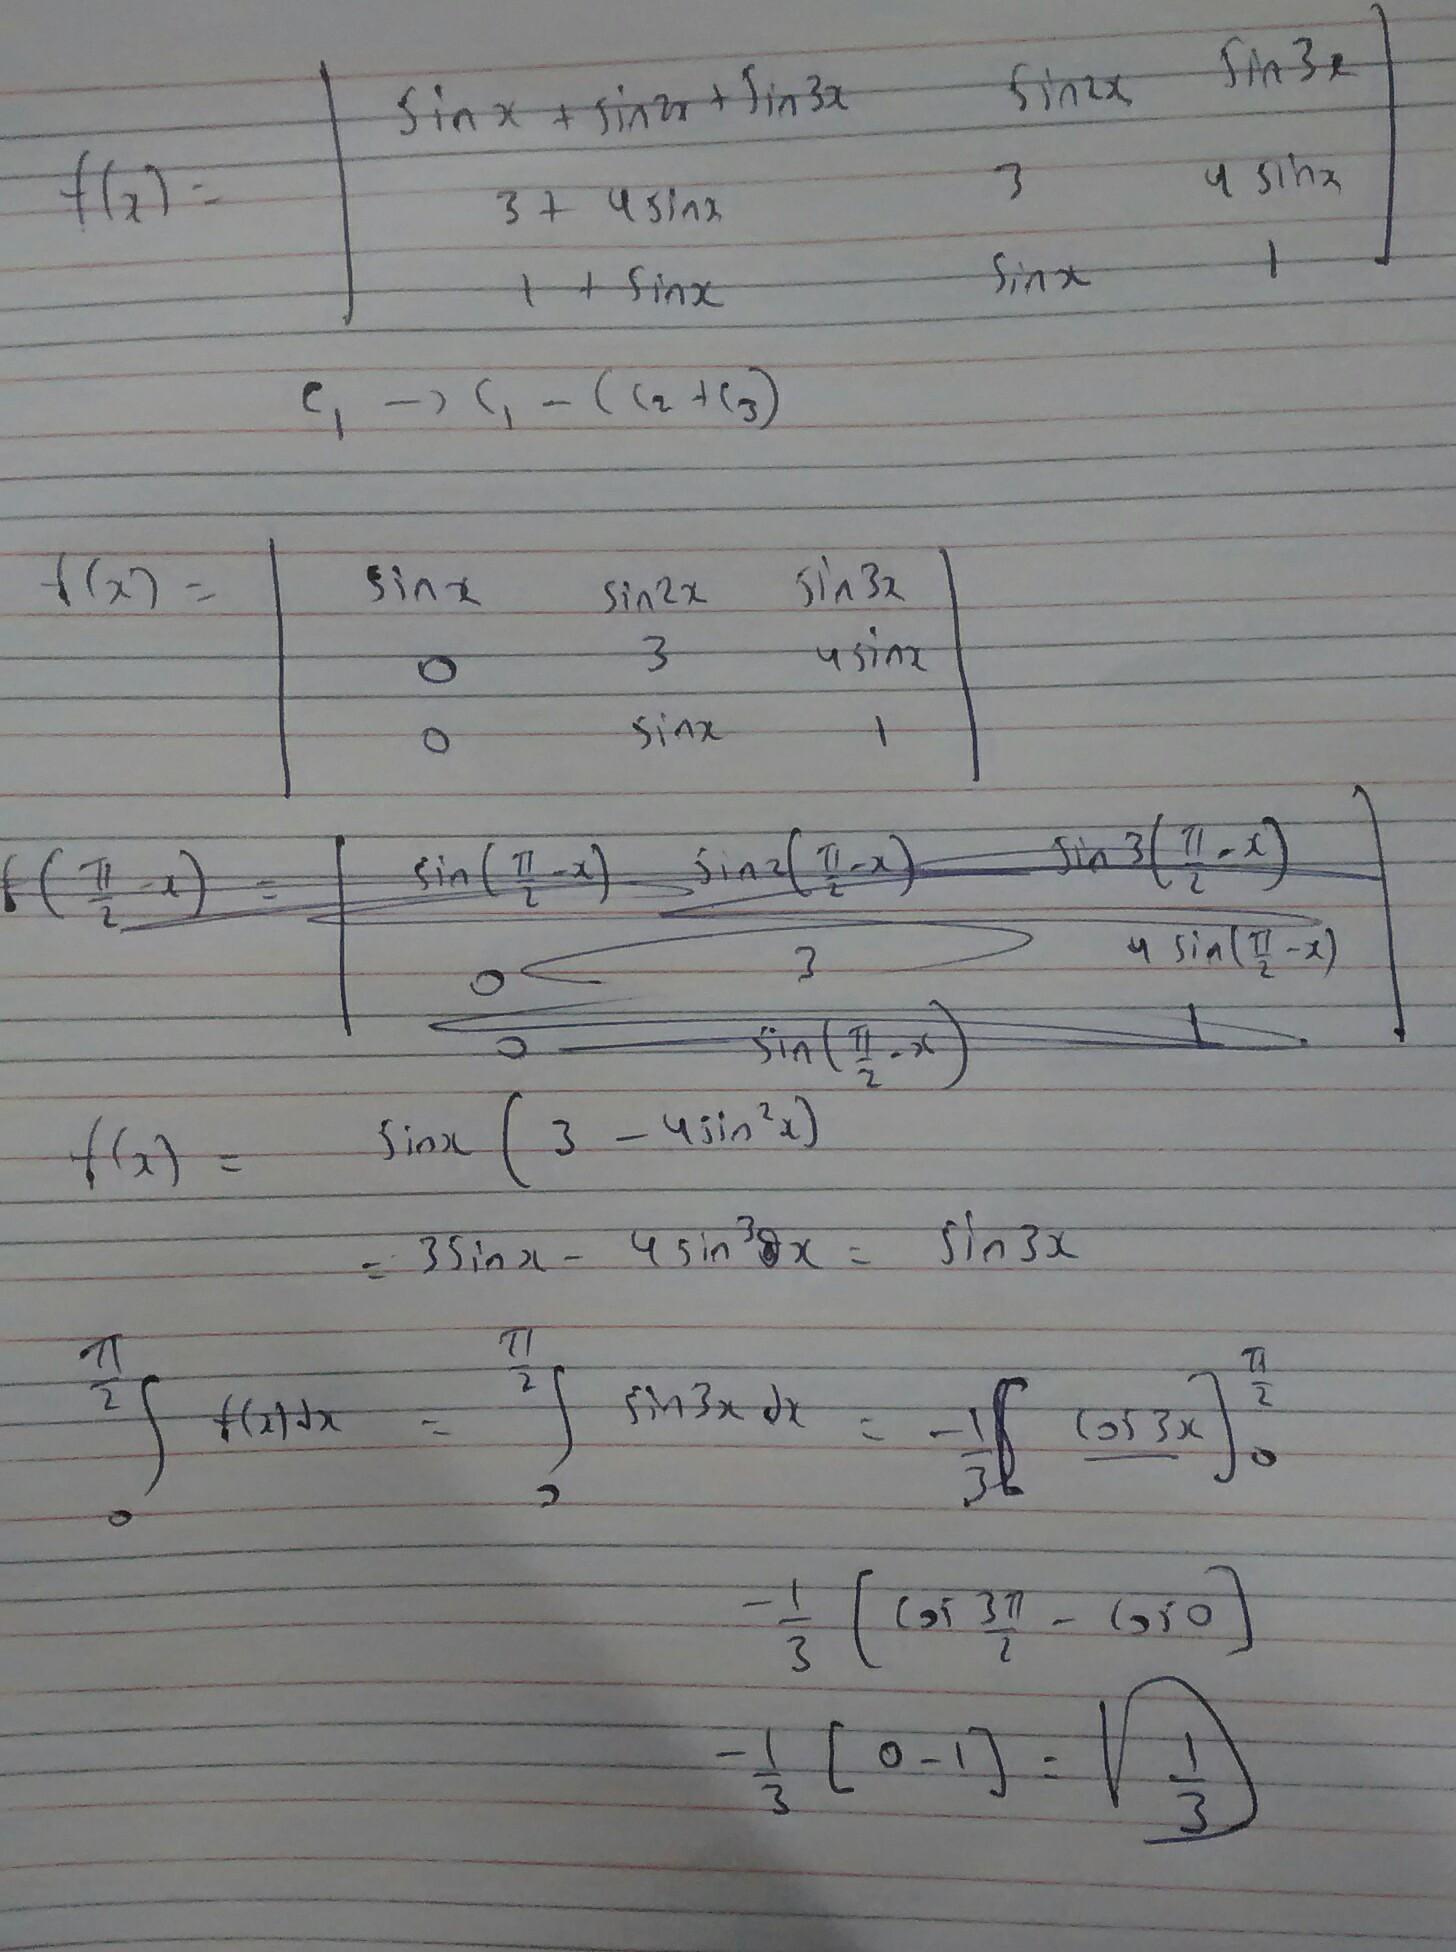 f(x) = | sinx + sin2x + sin3x   sin2x   sin3x |
| 3 + 4sinx   3   4sinx |
| 1 + sinx   sinx   1 |
C₁ → C₁ - (C₂ + C₃)
f(x) = | sinx   sin2x   sin3x |
| 0   3   4sinx |
| 0   sinx   1 |
f(π/2 - x) = | sin(π/2 - x)   sin2(π/2 - x)   sin3(π/2 - x) |
| 0   3   4sin(π/2 - x) |
| 0   sin(π/2 - x)   1 |
f(x) = sinx (3 - 4sin²x)
= 3sinx - 4sin³x = sin3x
∫₀^(π/2) f(x)dx = ∫₀^(π/2) sin3x dx = -1/3 [cos3x]₀^(π/2)
-1/3 [cos 3π/2 - cos0]
-1/3 [0 - 1] = 1/3